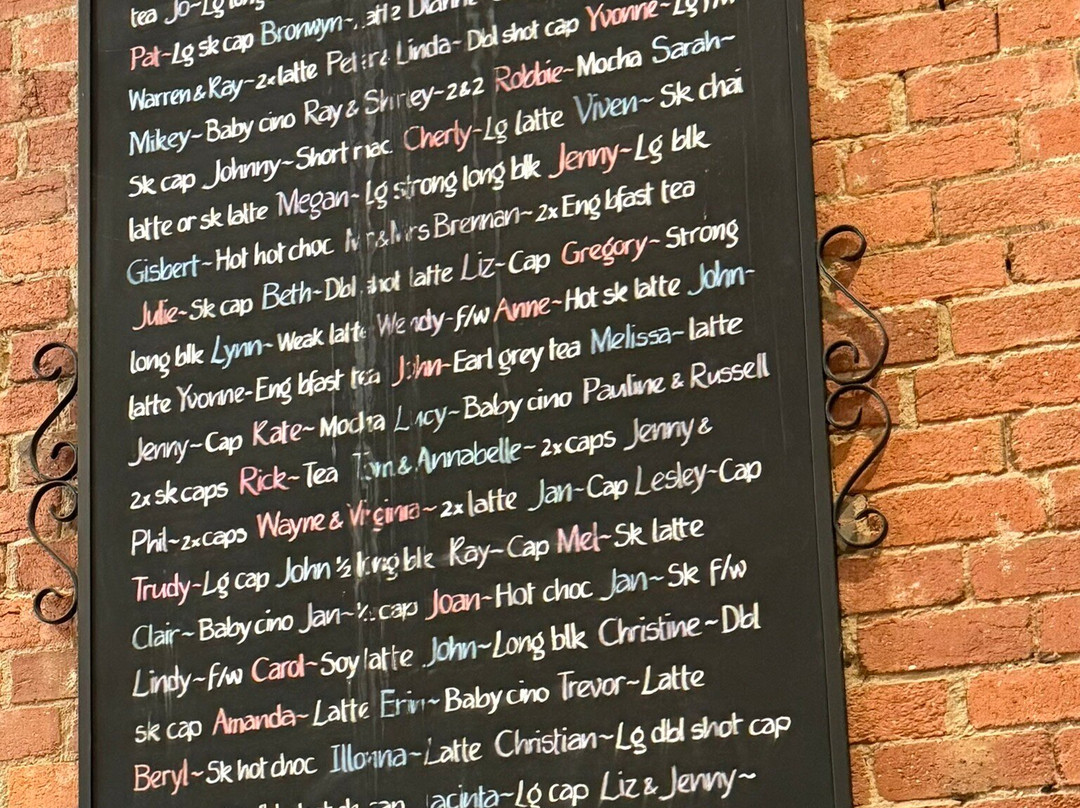 tea Jo~Lg long
Pat~Lg sk cap Bronwyn~
Warren & Ray~2x latte Peter & Linda~Dbl shot cap Yvonne~Lg f/w
Mikey~Baby cino Ray & Shirley~2&2 Robbie~Mocha Sarah~
Sk cap Johnny~Short mac Cherly~Lg latte Viven~Sk chai
latte or sk latte Megan~Lg strong long blk Jenny~Lg blk
Gisbert~Hot hot choc Mr & Mrs Brennan~2x Eng bfast tea
Julie~Sk cap Beth~Dbl shot latte Liz~Cap Gregory~Strong
long blk Lynn~Weak latte Wendy~f/w Anne~Hot sk latte John~
latte Yvonne~Eng bfast tea John~Earl grey tea Melissa~latte
Jenny~Cap Kate~Mocha Lucy~Baby cino Pauline & Russell
2x sk caps Rick~Tea Tom & Annabelle~2x caps Jenny &
Phil~2x caps Wayne & Virginia~2x latte Jan~Cap Lesley~Cap
Trudy~Lg cap John ½ long blk Ray~Cap Mel~Sk latte
Clair~Baby cino Jan~½ cap Joan~Hot choc Jan~Sk f/w
Lindy~f/w Carol~Soy latte John~Long blk Christine~Dbl
sk cap Amanda~Latte Erin~Baby cino Trevor~Latte
Beryl~Sk hot choc Illonna~Latte Christian~Lg dbl shot cap
Jacinta~Lg cap Liz & Jenny~